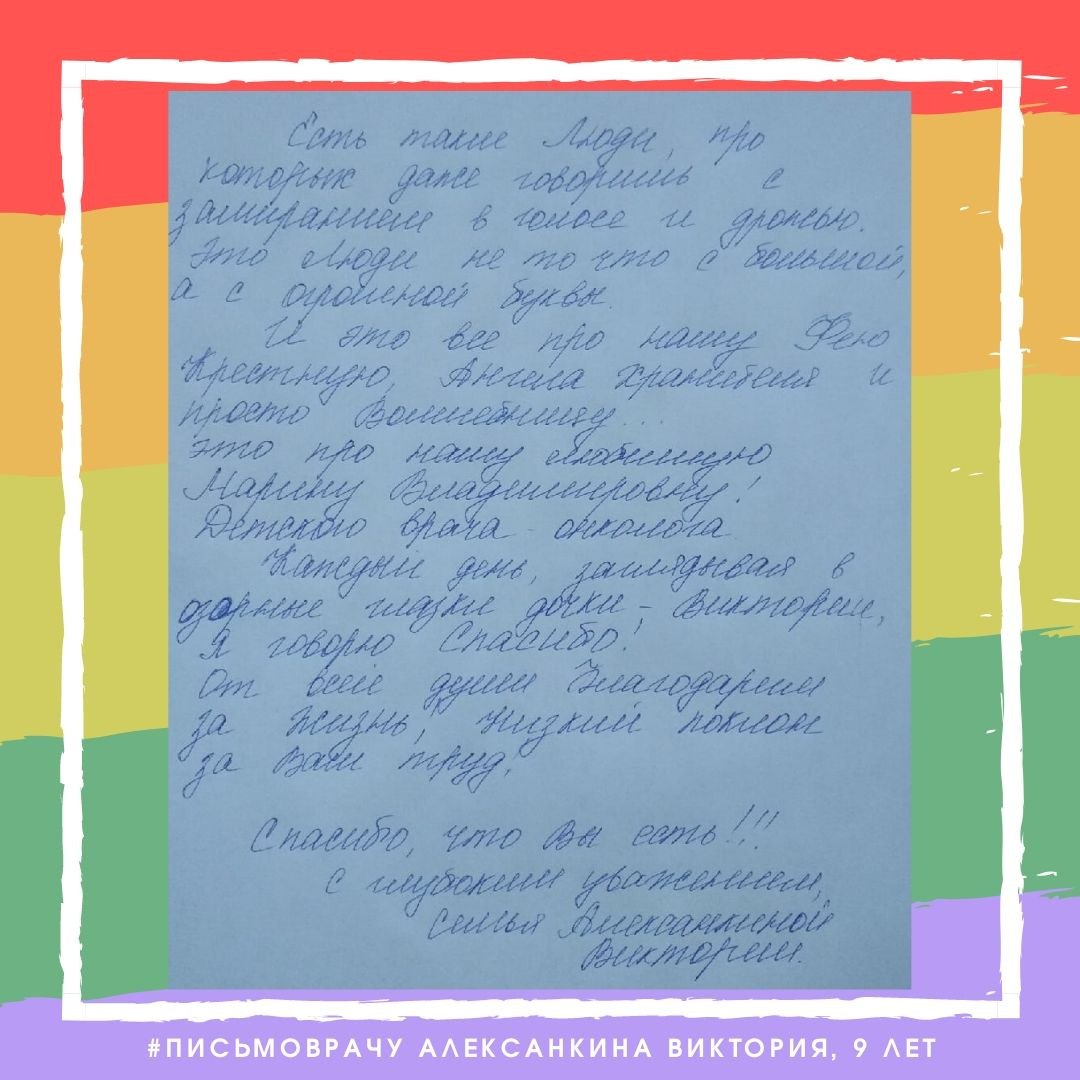 Есть такие Люди, про
которых даже говоришь с
замиранием в голосе и дрожью.
Это Люди не то что с большой,
а с огромной буквы.
И это все про нашу Фею
Крестную, Ангела Хранителя и
просто Волшебницу...
Это про нашу любимую
Марину Владимировну!
Детского врача - онколога.
Каждый день, заглядывая в
озорные глазки дочки - Виктории,
я говорю Спасибо!
От всей души Благодарим
за Жизнь! Низкий поклон
за Ваш труд!
Спасибо, что Вы есть!!!
С глубоким уважением,
семья Алексанкиной
Виктории.
#ПИСЬМОВРАЧУ АЛЕКСАНКИНА ВИКТОРИЯ, 9 ЛЕТ